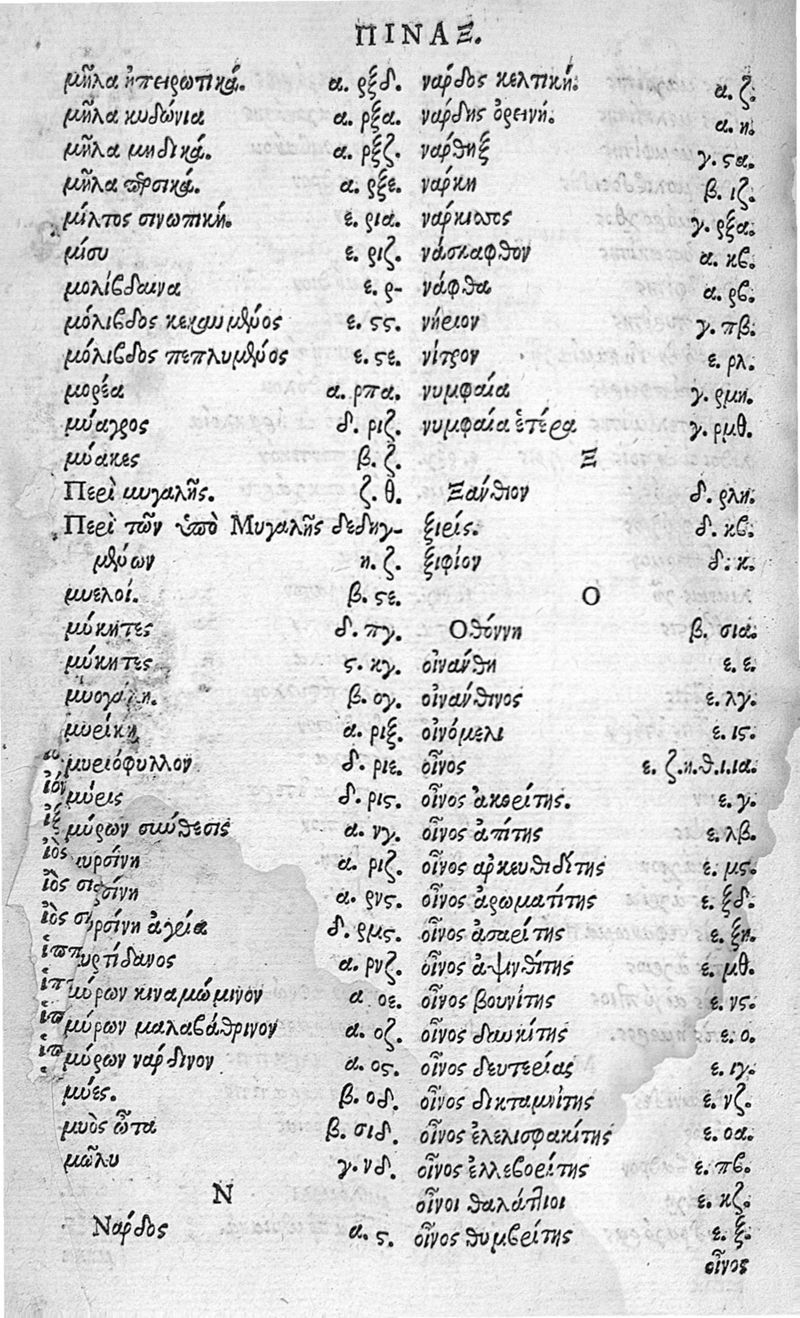 ΠΙΝΑΞ.
μῆλα ἠπειρωτικά. α. ρξδ.
μῆλα κυδώνια α. ρξα.
μῆλα μηδικά. α. ρξζ.
μῆλα περσικά. α. ρξε.
μίλτος σινωπική. ε. ρια.
μίσυ ε. ριζ.
μολίβδαινα ε. ρ-
μόλιβδος κεκαυμένος ε. ϛϛ.
μόλιβδος πεπλυμένος ε. ϛε.
μορέα α. ρπα.
μύαγρος δ. ριζ.
μύακες β. ζ.
Περὶ μυγαλῆς. ζ. θ.
Περὶ τῶν ὑπὸ Μυγαλῆς δεδηγ-
μένων η. ζ.
μυελοί. β. ϛε.
μύκητες δ. πγ.
μύκητες ϛ. κγ.
μυογάλη. β. ογ.
μυρίκη α. ριξ.
μυριόφυλλον δ. ριε.
μύρις δ. ριϛ.
μύρων σύνθεσις α. νγ.
υρσίνη α. ριζ.
σίνη α. ρνϛ.
ρσίνη ἀγρία δ. ρμϛ.
υρτίδανος α. ρνζ.
μύρων κιναμώμινον α οε.
μύρων μαλαβάθρινον α. οζ.
μύρων νάρδινον α. οϛ.
μύες. β. οδ.
μυὸς ὦτα β. σιδ.
μῶλυ γ. νδ.
Ν
Νάρδος α. ϛ.
νάρδος κελτική. α. ζ.
νάρδης ὀρεινή. α. η.
νάρθηξ γ. ϛα.
νάρκη β. ιζ.
νάρκισσος γ. ρξα.
νάσκαφθον α. κβ.
νάφθα α. ρβ.
νήριον γ. πβ.
νίτρον ε. ρλ.
νυμφαία γ. ρμη.
νυμφαία ἑτέρα γ. ρμθ.
Ξ
Ξάνθιον δ. ρλη.
ξιρίς. δ. κβ.
ξιφίον δ. κ.
Ο
Οθόννη β. σια.
οἰνάνθη ε. ε.
οἰνάνθινος ε. λγ.
οἰνόμελι ε. ιϛ.
οἶνος ε. ζ.η.θ.ι.ια.
οἶνος ἀκρίτης. ε. γ.
οἶνος ἀπίτης ε. λβ.
οἶνος ἀρκευθιδίτης ε. μϛ.
οἶνος ἀρωματίτης ε. ξδ.
οἶνος ἀσαρίτης ε. ξη.
οἶνος ἀψινθίτης ε. μθ.
οἶνος βουνίτης ε. νϛ.
οἶνος δαυκίτης ε. ο.
οἶνος δευτερίας ε. ιγ.
οἶνος δικταμνίτης ε. νζ.
οἶνος ἐλελισφακίτης ε. οα.
οἶνος ἐλλεβορίτης ε. πβ.
οἶνοι θαλάττιοι ε. κζ.
οἶνος θυμβρίτης ε. ξ.
οἶνος